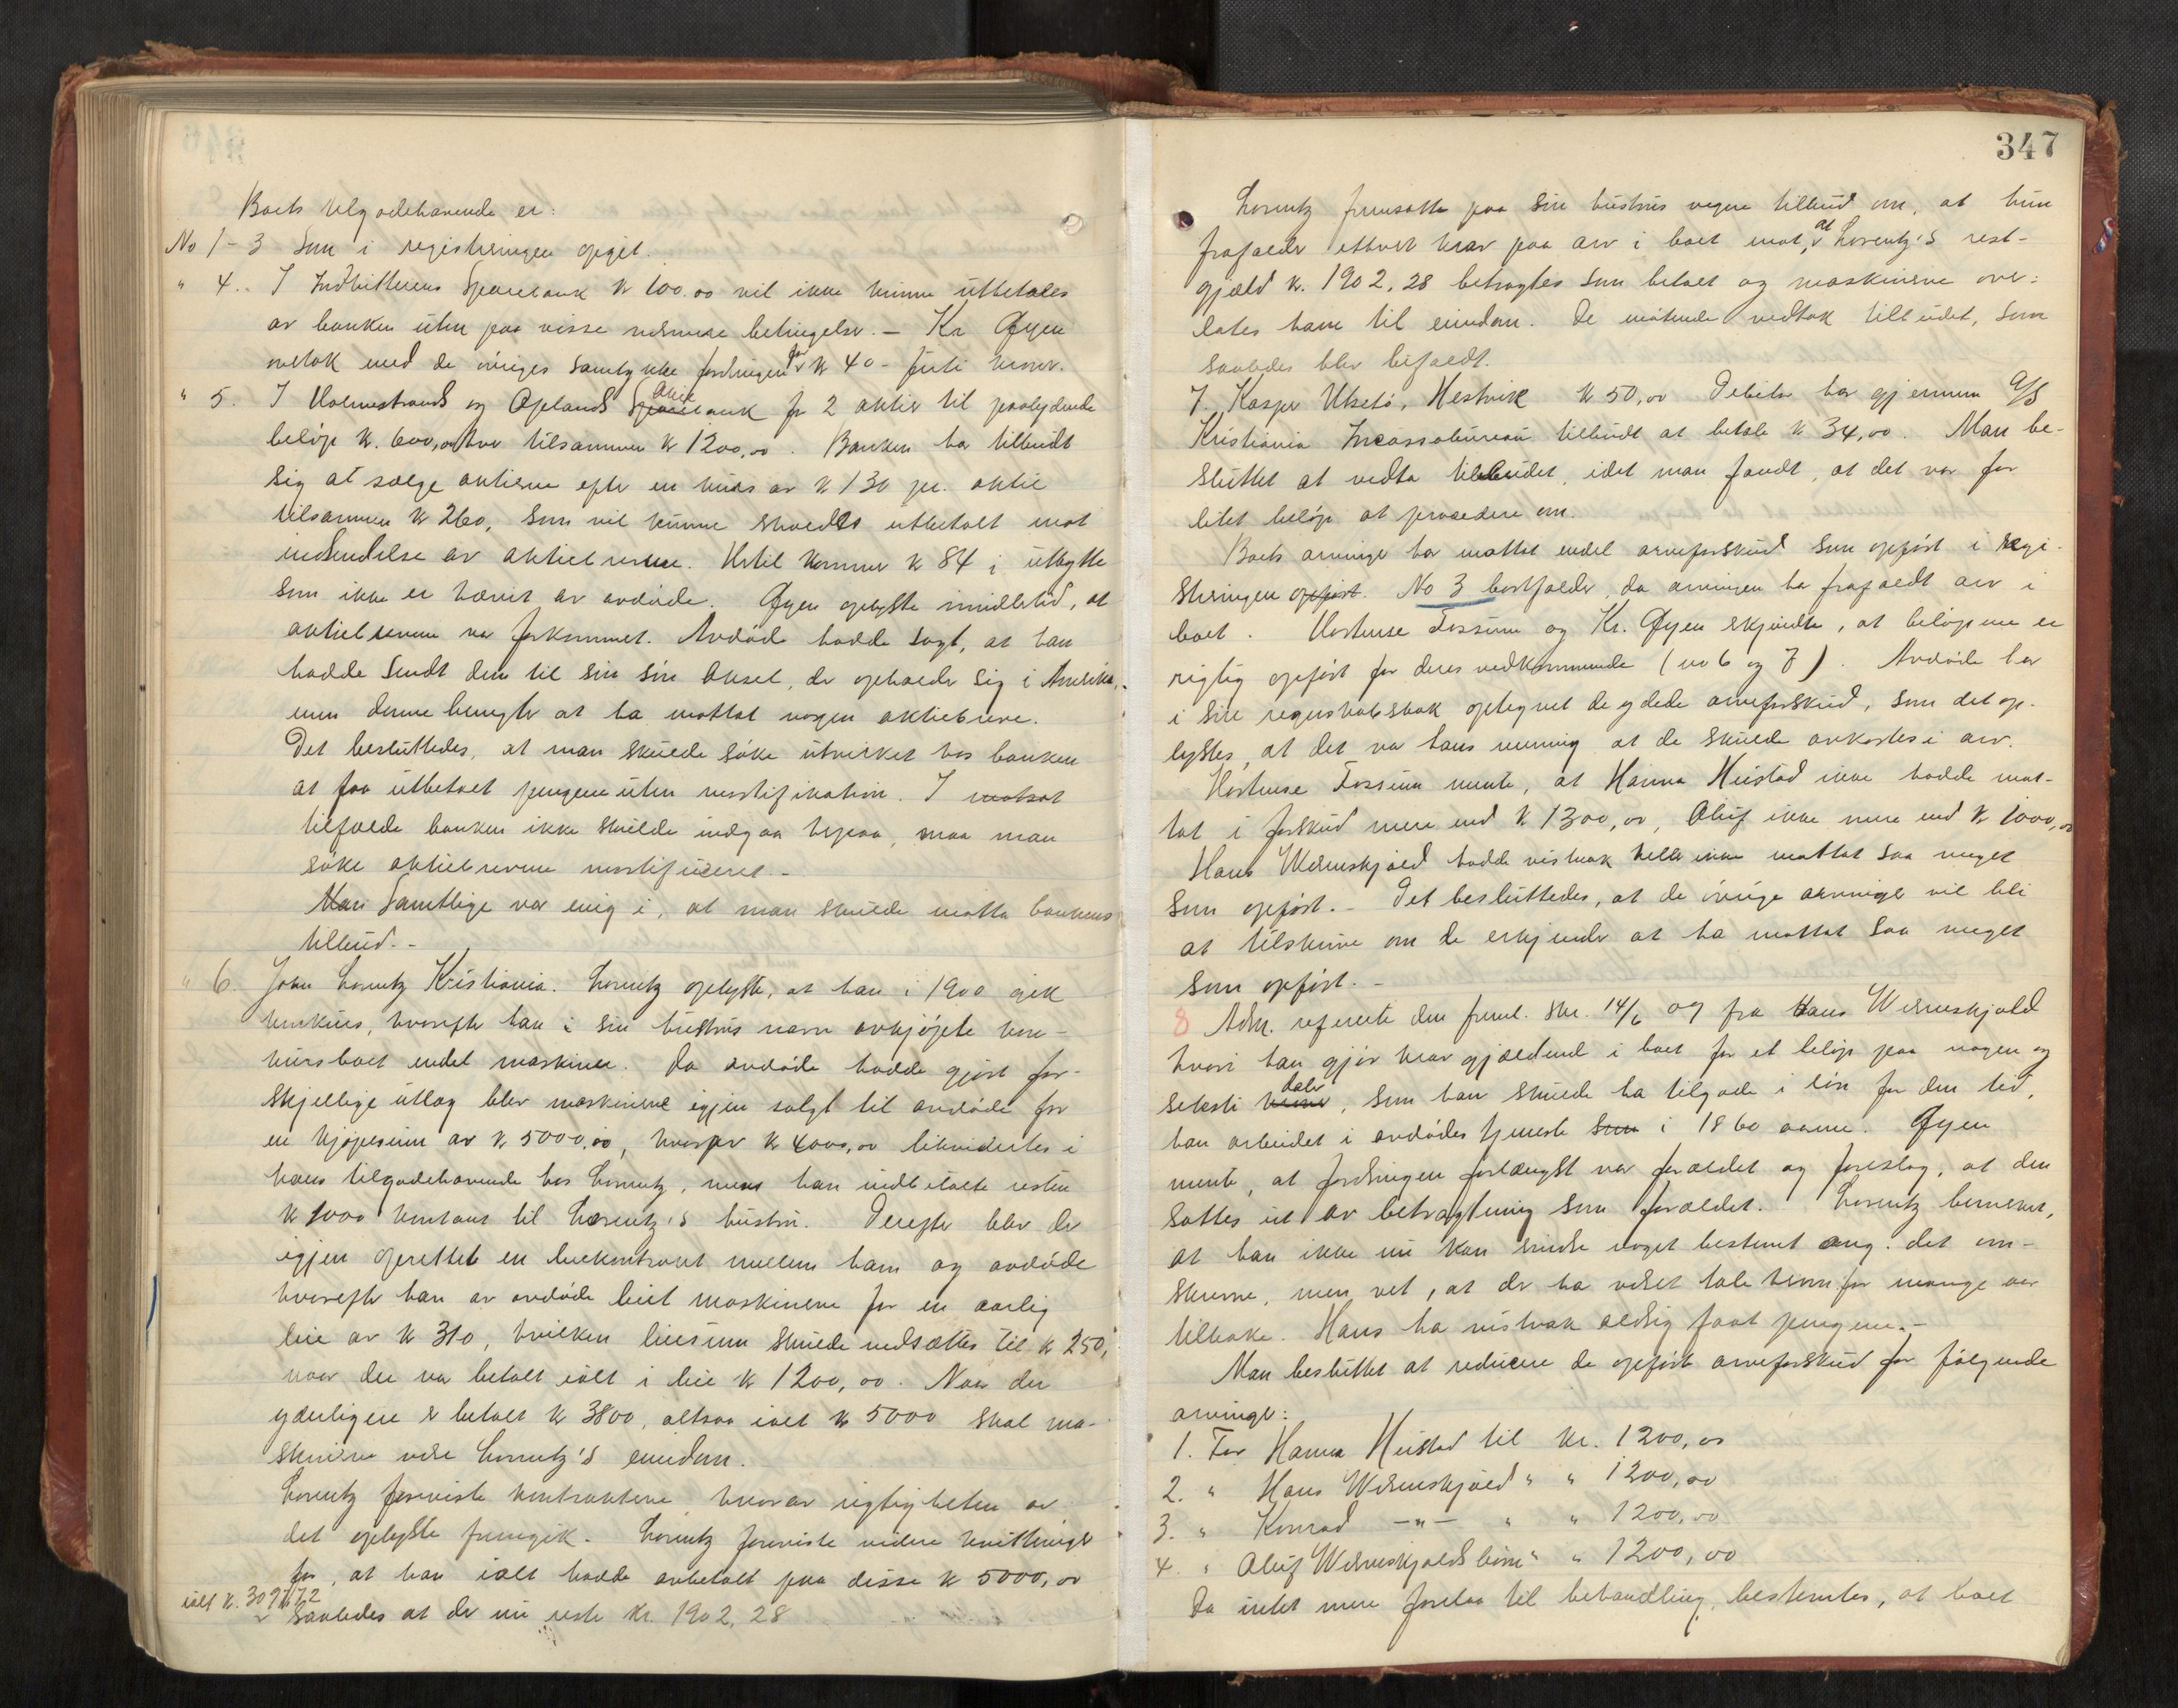 Boets tilgodehavende er:
No 1-3 Som i registreringen opgit.
" 4. I Indbitterens Sparebank k 100.00 vil ikke kunne utbetales
av banken uten paa visse nærmere betingelser. - Kr Øyen
overtok med de øvriges samtykke fordringen for k 40 - førti kroner.
" 5. I Holmestrands og Oplands Aktiebank for 2 aktier til paalydende
beløp k. 600,00 hver tilsammen k 1200,00. Banken har tilbudt
sig at sælge aktierne efter en kurs av k 130 pr. aktie
tilsammen k 260, som vil kunne straks utbetalt mot
indsendelse av aktiebrevene. Hertil kommer k 84 i utbytte
som ikke er hævet av avdøde. Øyen oplyste imidlertid, at
aktiebrevene var forkommet. Avdøde hadde sagt, at han
hadde sendt dem til sin søn Aksel, der opholder sig i Amerika,
men denne benegter at ha mottat nogen aktiebreve.
Det besluttedes, at man skulde søke utvirket hos banken
at faa utbetalt pengene uten mortifikation. I motsat
tilfælde banken ikke skulde indgaa herpaa, maa man
søke aktiebrevene mortificeret. -
Man Samtlige var enig i, at man skulde motta bankens
tilbud. -
" 6. John Lorentz Kristiania. Lorentz oplyste, at han i 1900 gik
konkurs, hvorefter han i sin hustrus navn avkjøpte kon-
kursboet endel maskiner. Da avdøde hadde gjort for-
skjellige utlæg blev maskinerne igjen solgt til avdøde for
en kjøpesum av k 5000,00, hvorav k 4000,00 likvidertes i
hans tilgodehavende hos Lorentz, mens han indbetalte resten
k 1000 kontant til Lorentz's hustru. Derefter blev der
igjen oprettet en leiekontrakt mellem ham og avdøde
hvorefter han av avdøde leiet maskinerne for en aarlig
leie av k 310, hvilken leiesum skulde nedsættes til k 250,
naar der var betalt ialt i leie k 1200,00. Naar der
yderligere er betalt k 3800, altsaa ialt k 5000 skal ma-
skinerne være Lorentz's eiendom.
Lorentz foreviste kontrakterne hvorav rigtigheten av
det oplyste fremgik. Lorentz foreviste videre kvitteringer
for, at han ialt hadde avbetalt paa disse k 5000,00
ialt k. 3097,72
saaledes at der nu rester kr. 1902,28
347
Lorentz fremsatte paa sin hustrus vegne tilbud om, at hun
frafalder ethvert krav paa arv i boet mot, at Lorentz's rest-
gjæld k. 1902,28 betragtes som betalt og maskinerne over-
lates ham til eiendom. De møtende vedtok tilbudet, som
saaledes blev bifaldt.
7. Kasper Utsetø, Hestvik k 50,00 Debitor har gjennem A/S
Kristiania Incassobureau tilbudt at betale k 34,00. Man be-
sluttet at vedta tilbudet, idet man fandt, at det var for
litet beløp at procedere om.
Boets arvinger har mottat endel arveforskud som opført i regi-
streringen opført. No 3 bortfalder, da arvingen har frafaldt arv i
boet. Hortense Fossum og Kr. Øyen erkjendte, at beløpene er
rigtig opført for deres vedkommende (no 6 og 7). Avdøde har
i sin regnskabsbok optegnet de ydede arveforskud, som det op-
lystes, at det var hans mening at de skulde avkortes i arv.
Hortense Fossum mente, at Hanna Heistad ikke hadde mot-
tat i forskud mere end k 1300,00, Oluf ikke mere end k 1000,00
Hans Werenskjold hadde vistnok heller ikke mottat saa meget
som opført. - Det besluttedes, at de øvrige arvinger vil bli
at tilskrive om de erkjender at ha mottat saa meget
som opført. -
8 Adm. refererte den freml. skr. 14/6 09 fra Hans Werenskjold
hvori han gjør krav gjældende i boet for et beløp paa nogen og
seksti kroner daler, som han skulde ha tilgode i løn for den tid,
han arbeidet i avdødes tjeneste som i 1860 aarene. Øyen
mente, at fordringen forlængst var forældet og foreslog, at den
sættes ut av betragtning som forældet. Lorentz bemerket,
at han ikke nu kan erindre noget bestemt ang. det om-
skrevne, men vet, at der har været tale herom for mange aar
tilbake. Hans har vistnok aldrig faat pengene. -
Man besluttet at reducere de opførte arveforskud for følgende
arvinger:
1. For Hanna Heistad til kr. 1200,00
2. " Hans Werenskjold " " 1200,00
3. " Konrad -"- " " 1200,00
4. " Oluf Werenskjolds børn " " 1200,00
Da intet mere forelaa til behandling, bestemtes, at boet